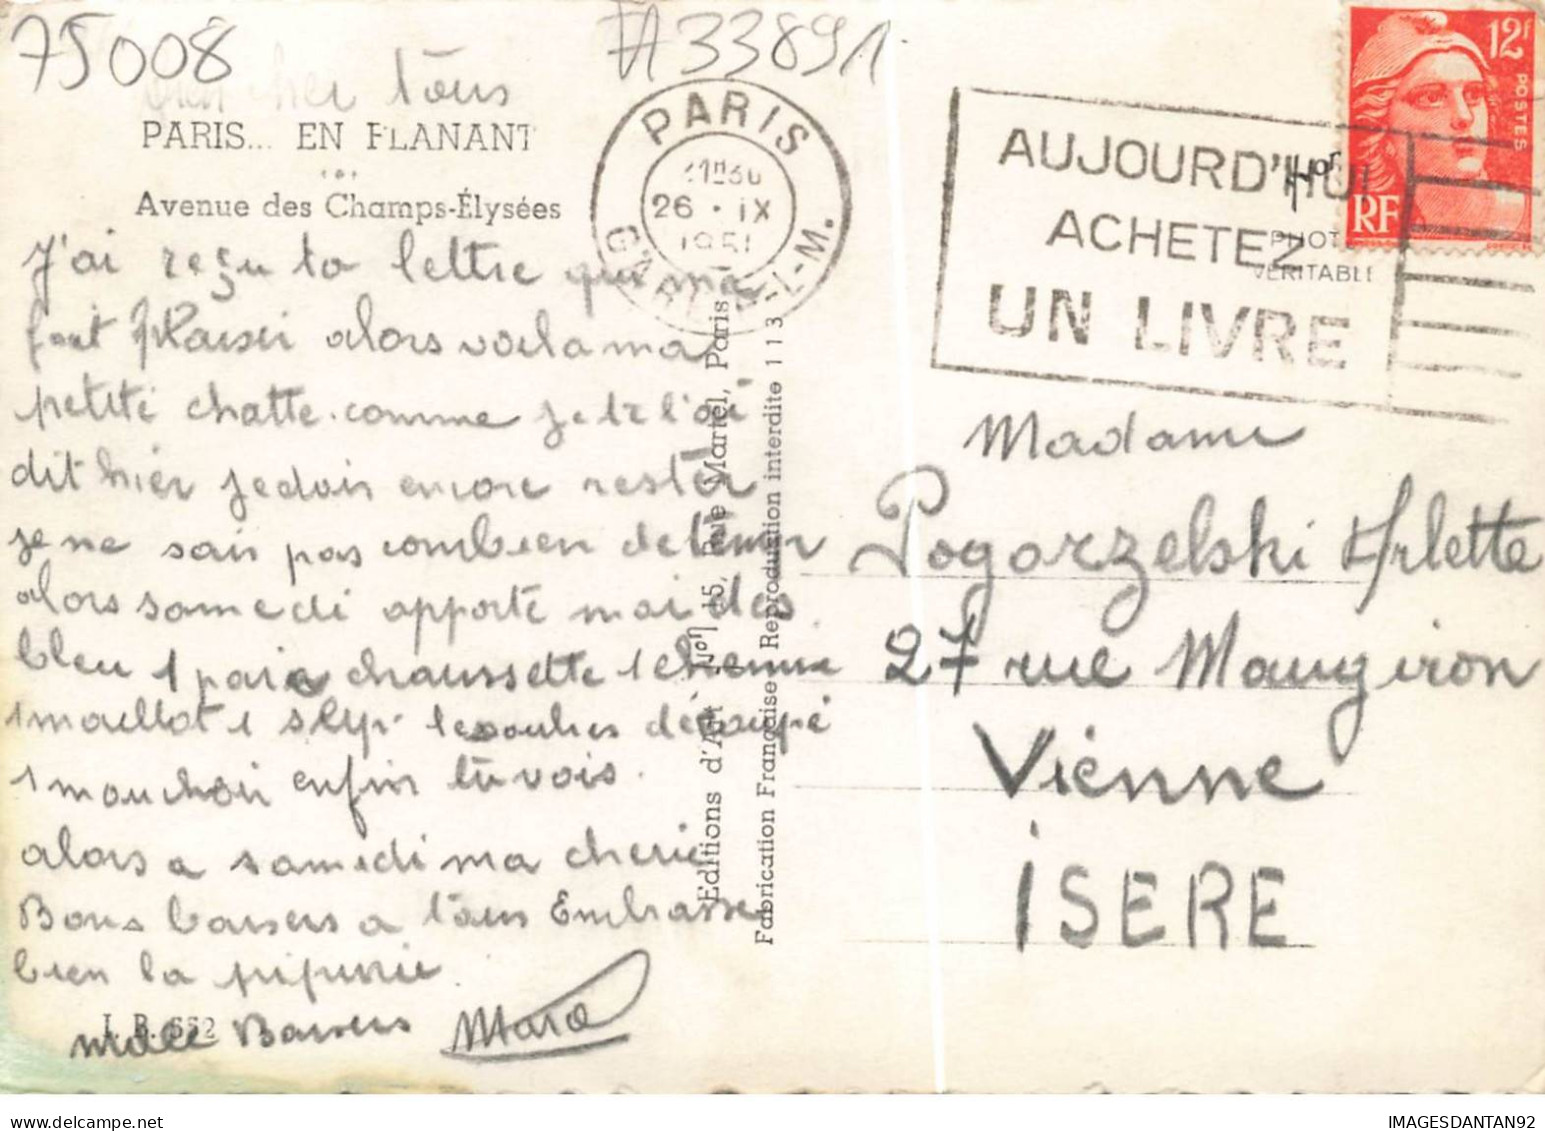 75008
A33891
bien cher tous
PARIS... EN FLANANT
Avenue des Champs-Élysées
J'ai reçu ta lettre qui ma
fait plaisir alors voila ma
petite chatte. comme je te l'ai
dit hier je dois encore rester
je ne sais pas combien de temps
alors samedi apporte moi des
bleu 1 paire chaussette 1 chemise
1 maillot 1 slip les soulies découpé
1 mouchoir enfin tu vois.
alors a samedi ma cherie
Bons baisers a tous Embrasse
bien la
I. B. 552
mille Baisers Marc
PARIS
26 · IX
1951
GARE P-L-M.
Editions d'Art Yvon, 15, Rue Martel, Paris
Fabrication Française - Reproduction interdite 113
AUJOURD'HUI
ACHETEZ
UN LIVRE
12F
POSTES
RF
PHOTO
VERITABLE
Madame
Pogorzelski Arlette
27 rue Maugiron
Vienne
ISERE
IMAGESDANTAN92